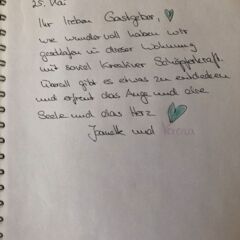 25. Mai
Ihr lieben Gastgeber,
wie wundervoll haben wir
geschlafen in dieser Wohnung
mit soviel kreativer Schöpferkraft.
Überall gibt es etwas zu entdecken
und erfreut das Auge und die
Seele und das Herz
Jeanette und